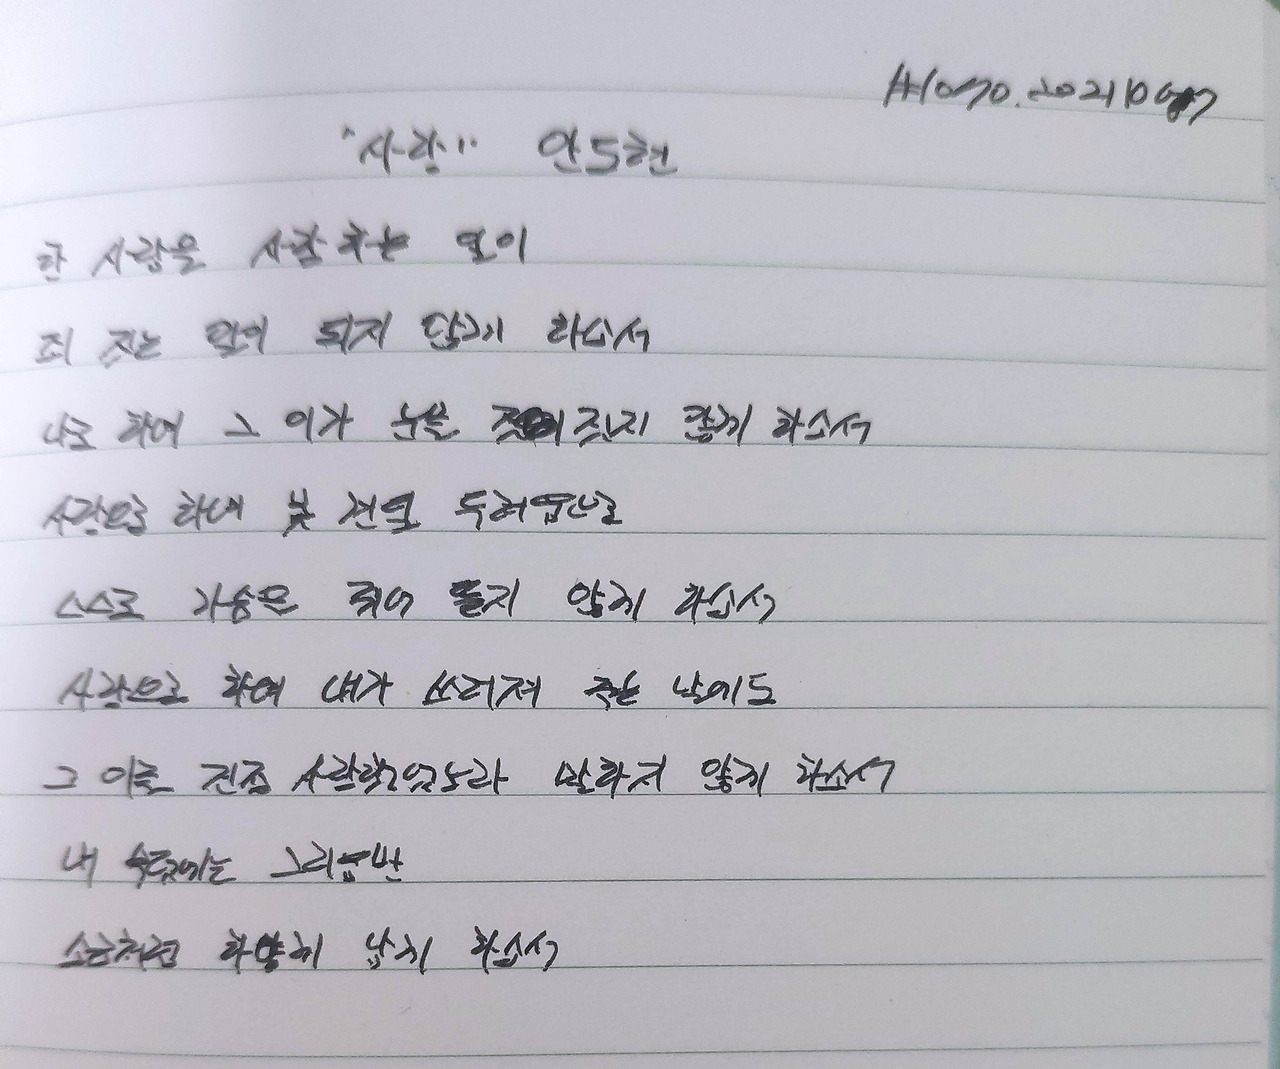 #1070. 20211007
"사랑" 안도현
한 사람을 사랑하는 일이
죄 짓는 일이 되지 않게 하소서
나로 하여 그 이가 눈물 짓지 않게 하소서
사랑으로 하여 못 견딜 두려움으로
스스로 가슴을 쥐어 뜯지 않게 하소서
사랑으로 하여 내가 쓰러져 죽는 날에도
그 이를 진정 사랑했었노라 말하지 않게 하소서
내 무덤에는 그리움만
소금처럼 하얗게 남게 하소서